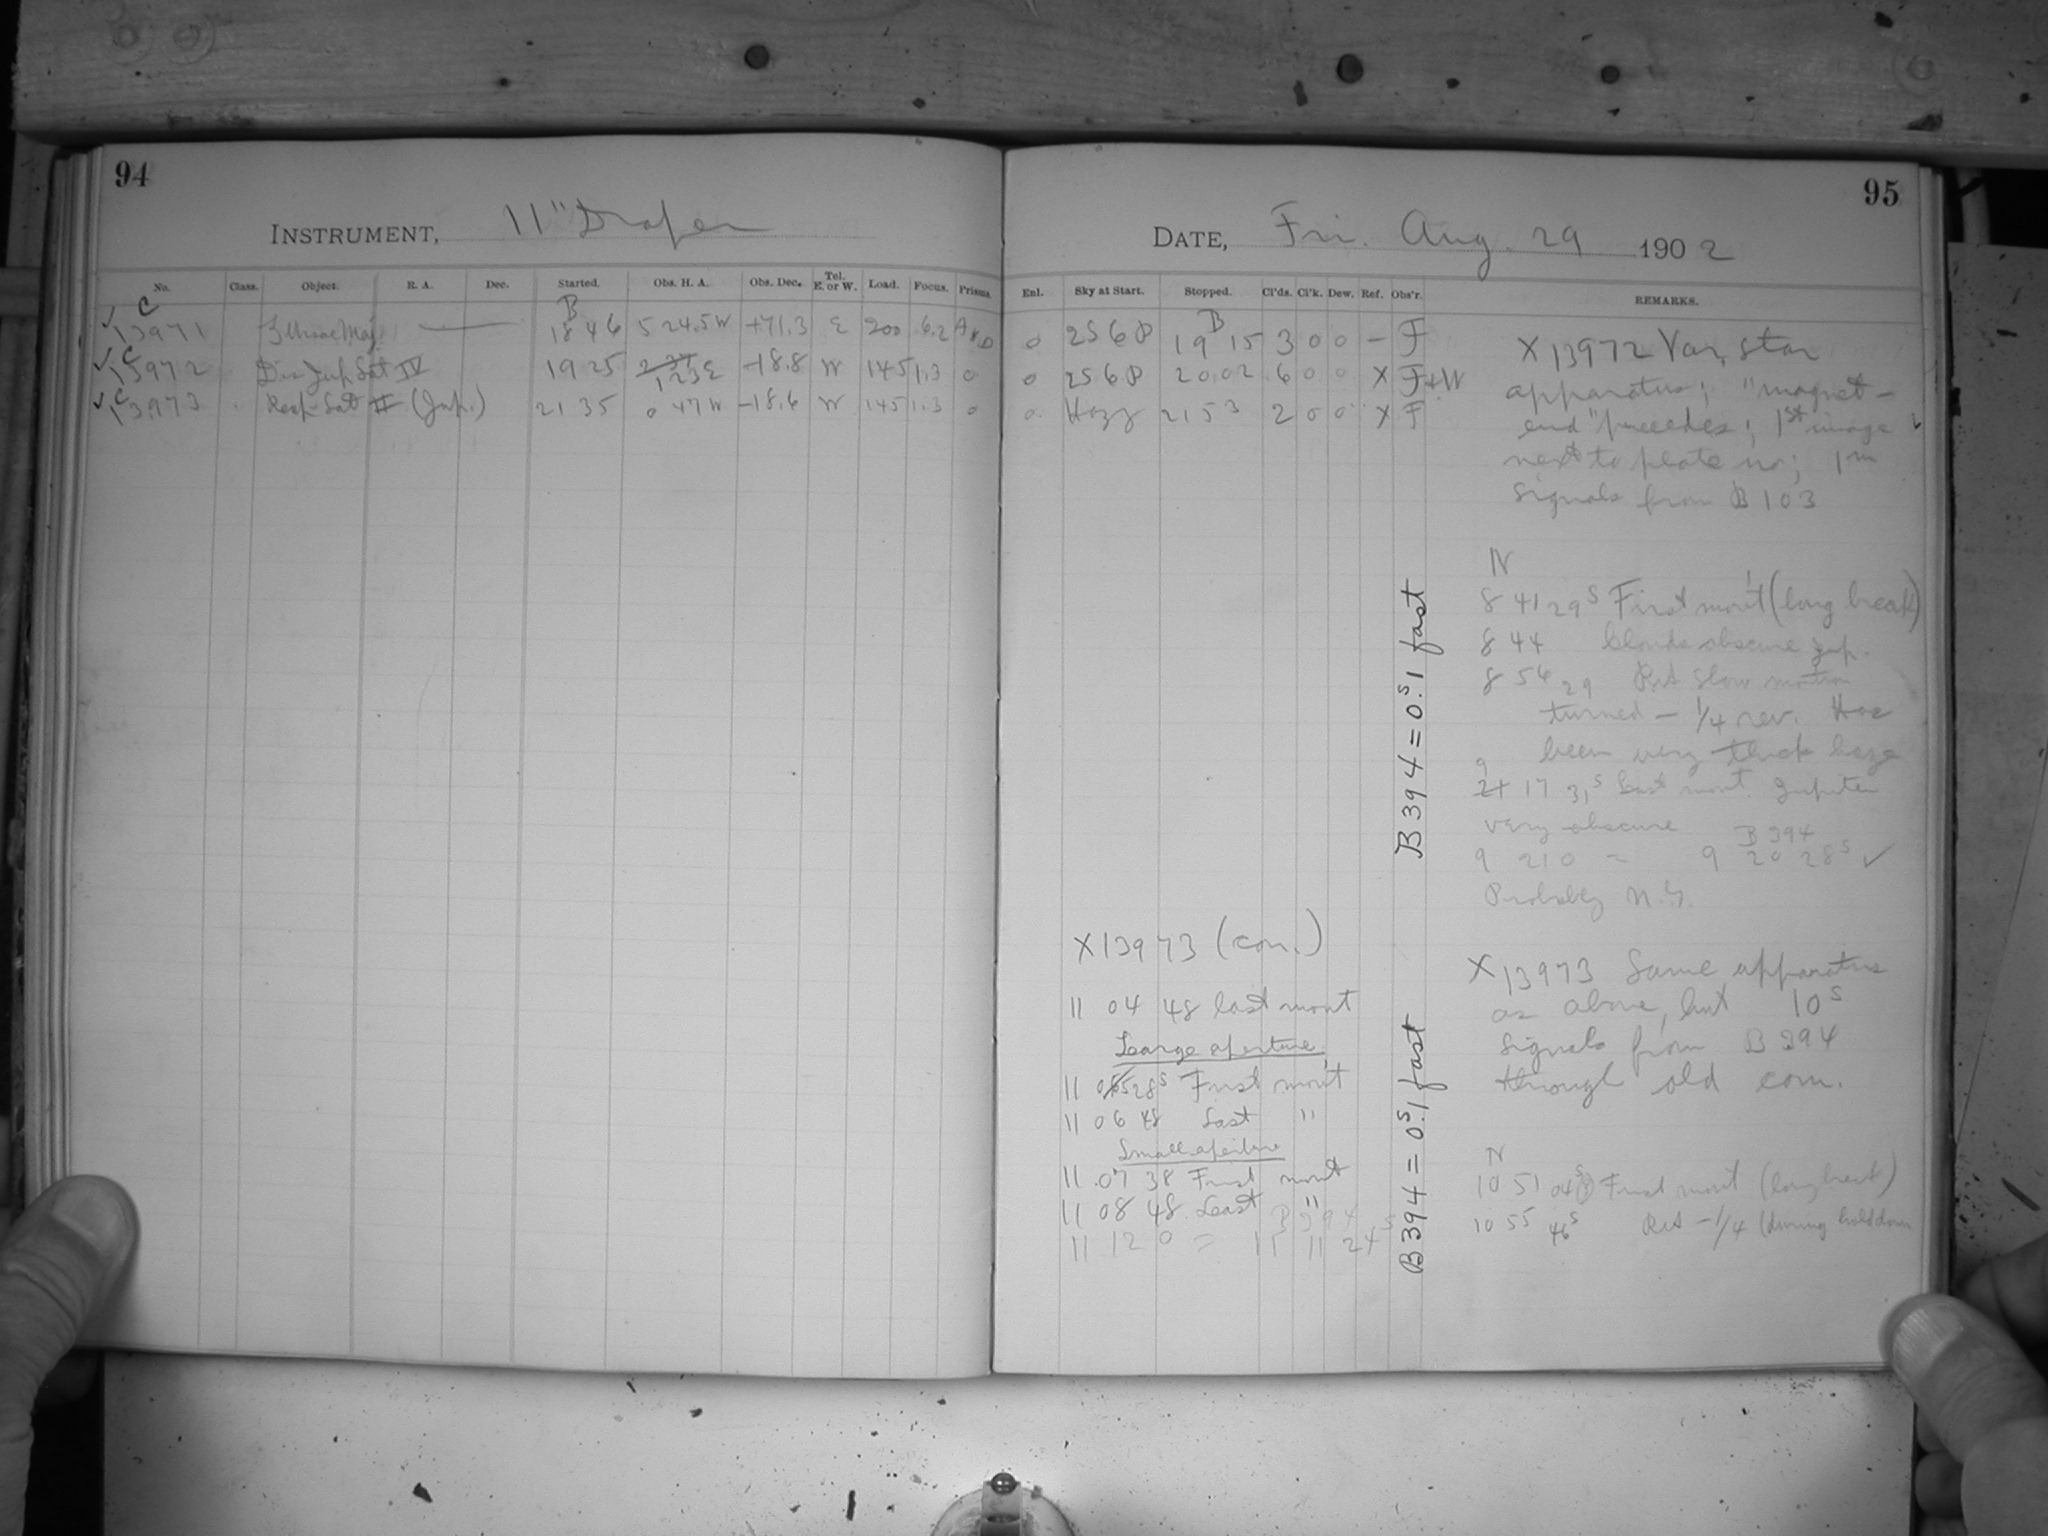 94
INSTRUMENT, 11" Draper
No. Class. Object. R. A. Dec. Started. Obs. H. A. Obs. Dec. Tel. E. or W. Load. Focus. Prisms.
C B
13971 18 46 5 24.5 W +71.3 E 200 6.2
C
13972 Dis Jup. Sat IV 19 25 1 23 E -18.8 W 145 1.3 0
C
13973 Reap. Sat II (Jup.) 21 35 0 47 W -18.6 W 145 1.3 0
95
DATE, Fri. Aug. 29 1902
Enl. Sky at Start. Stopped. Cl'ds. Cl'k. Dew. Ref. Obs'r. REMARKS.
B
0 2S6P 19 15 3 0 0 - F
0 2S6P 20 02 6 0 0 X F+W
0 Hazy 21 53 2 0 0 X F
X 13972 Var. star
apparatus; "magnet-
end" precedes; 1st image
next to plate no; 1m
signals from B 103
N
8 41 29s First mov't (long break)
8 44 Clouds obscure Jup.
8 54 29 Rt slow motion
turned - 1/4 rev. Has
been very thick haze
9
17 31s Last movt. Jupiter
very obscure
B 394
9 21 0 = 9 20 28s ✓
Probably N.G.
B 394 = 0s.1 fast
X 13973 Same apparatus
as above, but 10s
signals from B 394
through old com.
N
10 51 04s First movt (long break)
10 55 46s Rt - 1/4 (during hold down
X 13973 (con.)
11 04 48 last movt
Large aperture
11 05 28s First mov't
11 06 48 Last "
Small aperture
11 07 38 First movt
11 08 48 Last "
B 394
11 12 0 = 11 11 24s
B 394 = 0s.1 fast